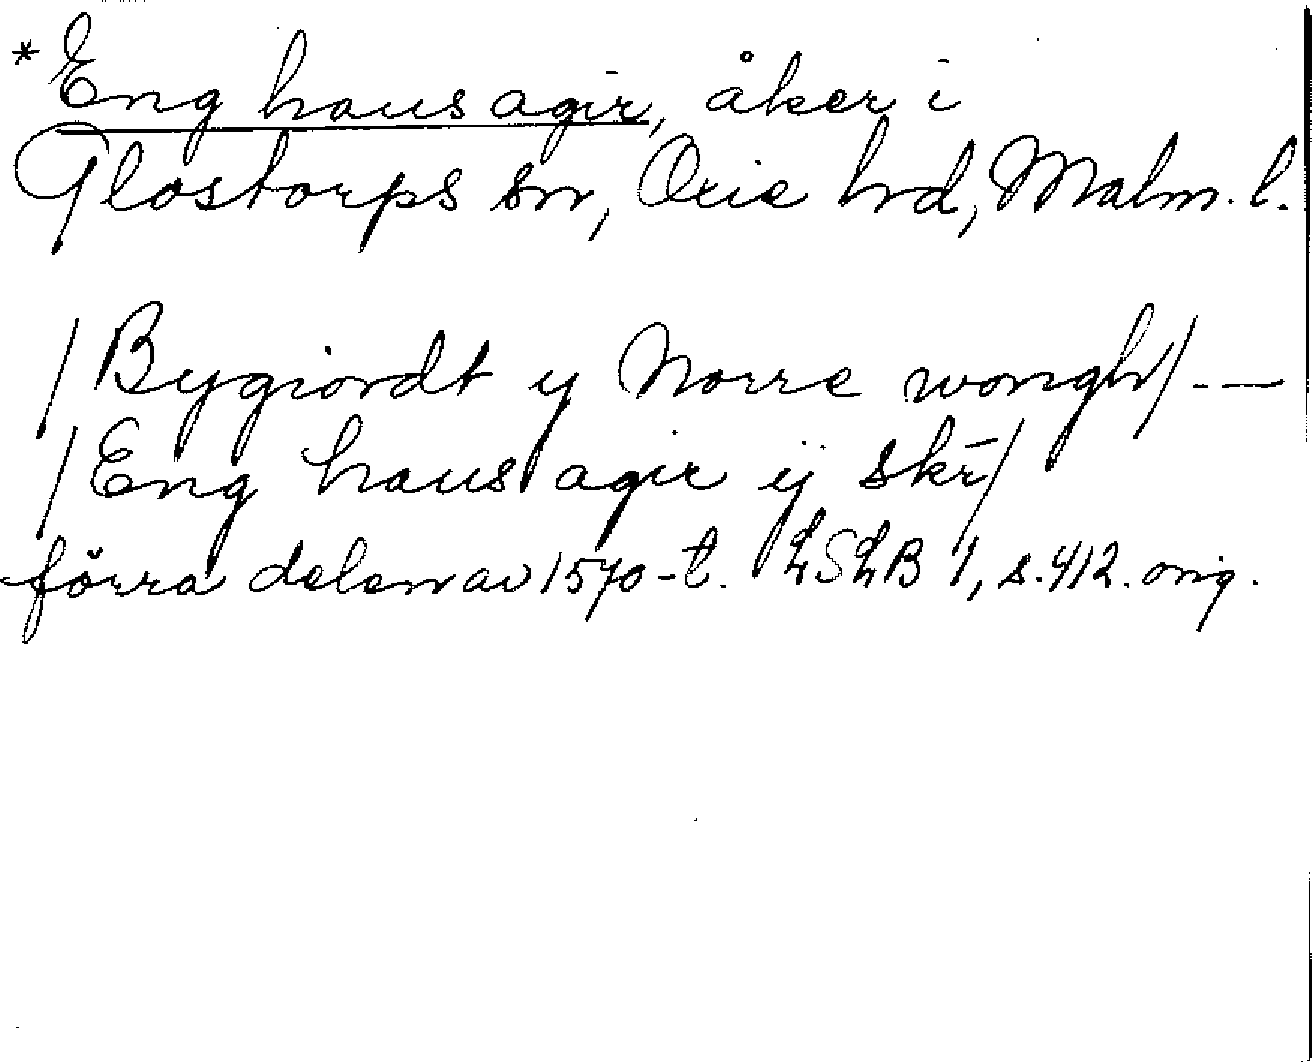 *Eng haus agir, åker i
Glostorps sn, Oxie hrd, Malm. l.
/Bygiordt y Norre wongh/ - —
/Eng haus agir ij skr̄/
förra delen av 1570-t. LSLB 1, s. 412. orig.